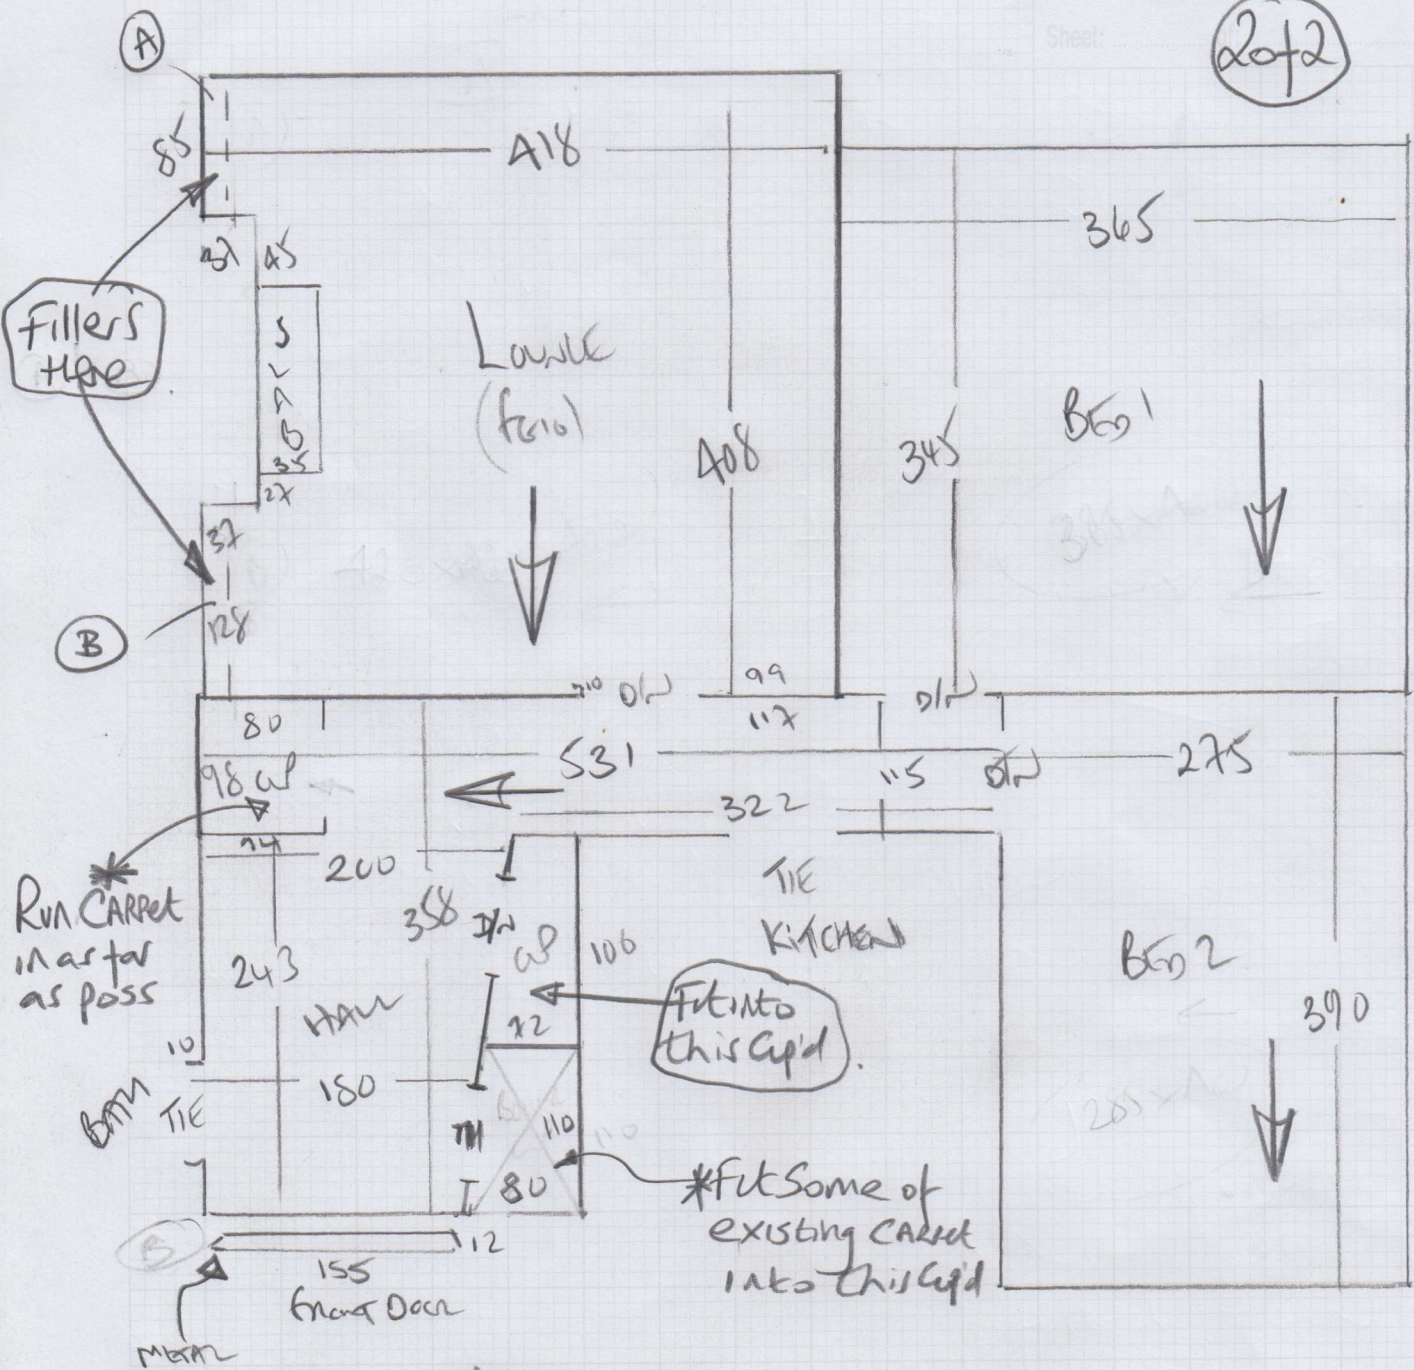 Sheet:
2of2
A
85
418
365
37
45
Fillers
Here
S
L
A
B
35
27
LOUNGE
408
345
BED 1
37
128
B
D/W
99
117
D/W
80
531
275
98 CUP
322
115
D/W
74
200
*
RUN CARPET
in as far
as poss
358
D/W
CUP
106
TIE
KITCHEN
243
HALL
Fit into
this Cup'd
BED 2
390
72
10
BATH
TIE
180
110
80
*Fit Some of
existing CARPET
into this Cup'd
12
155
Front Door
METAL